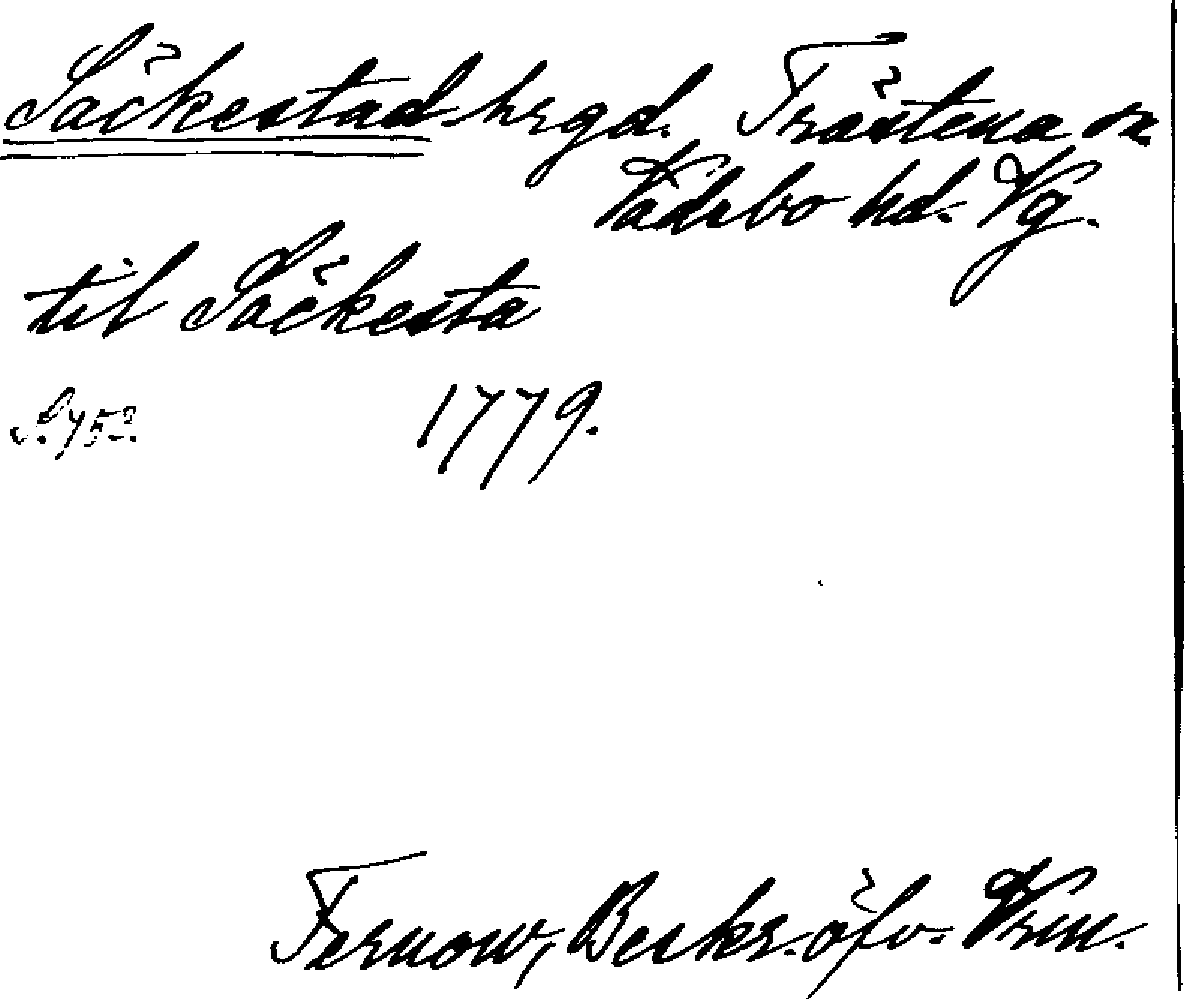 Säckestad hrgd. Trästena sn
Vadsbo hd. Vg.
til Säckesta
S. 752. 1779.
Fernow, Beskr. öfv. Vrm.